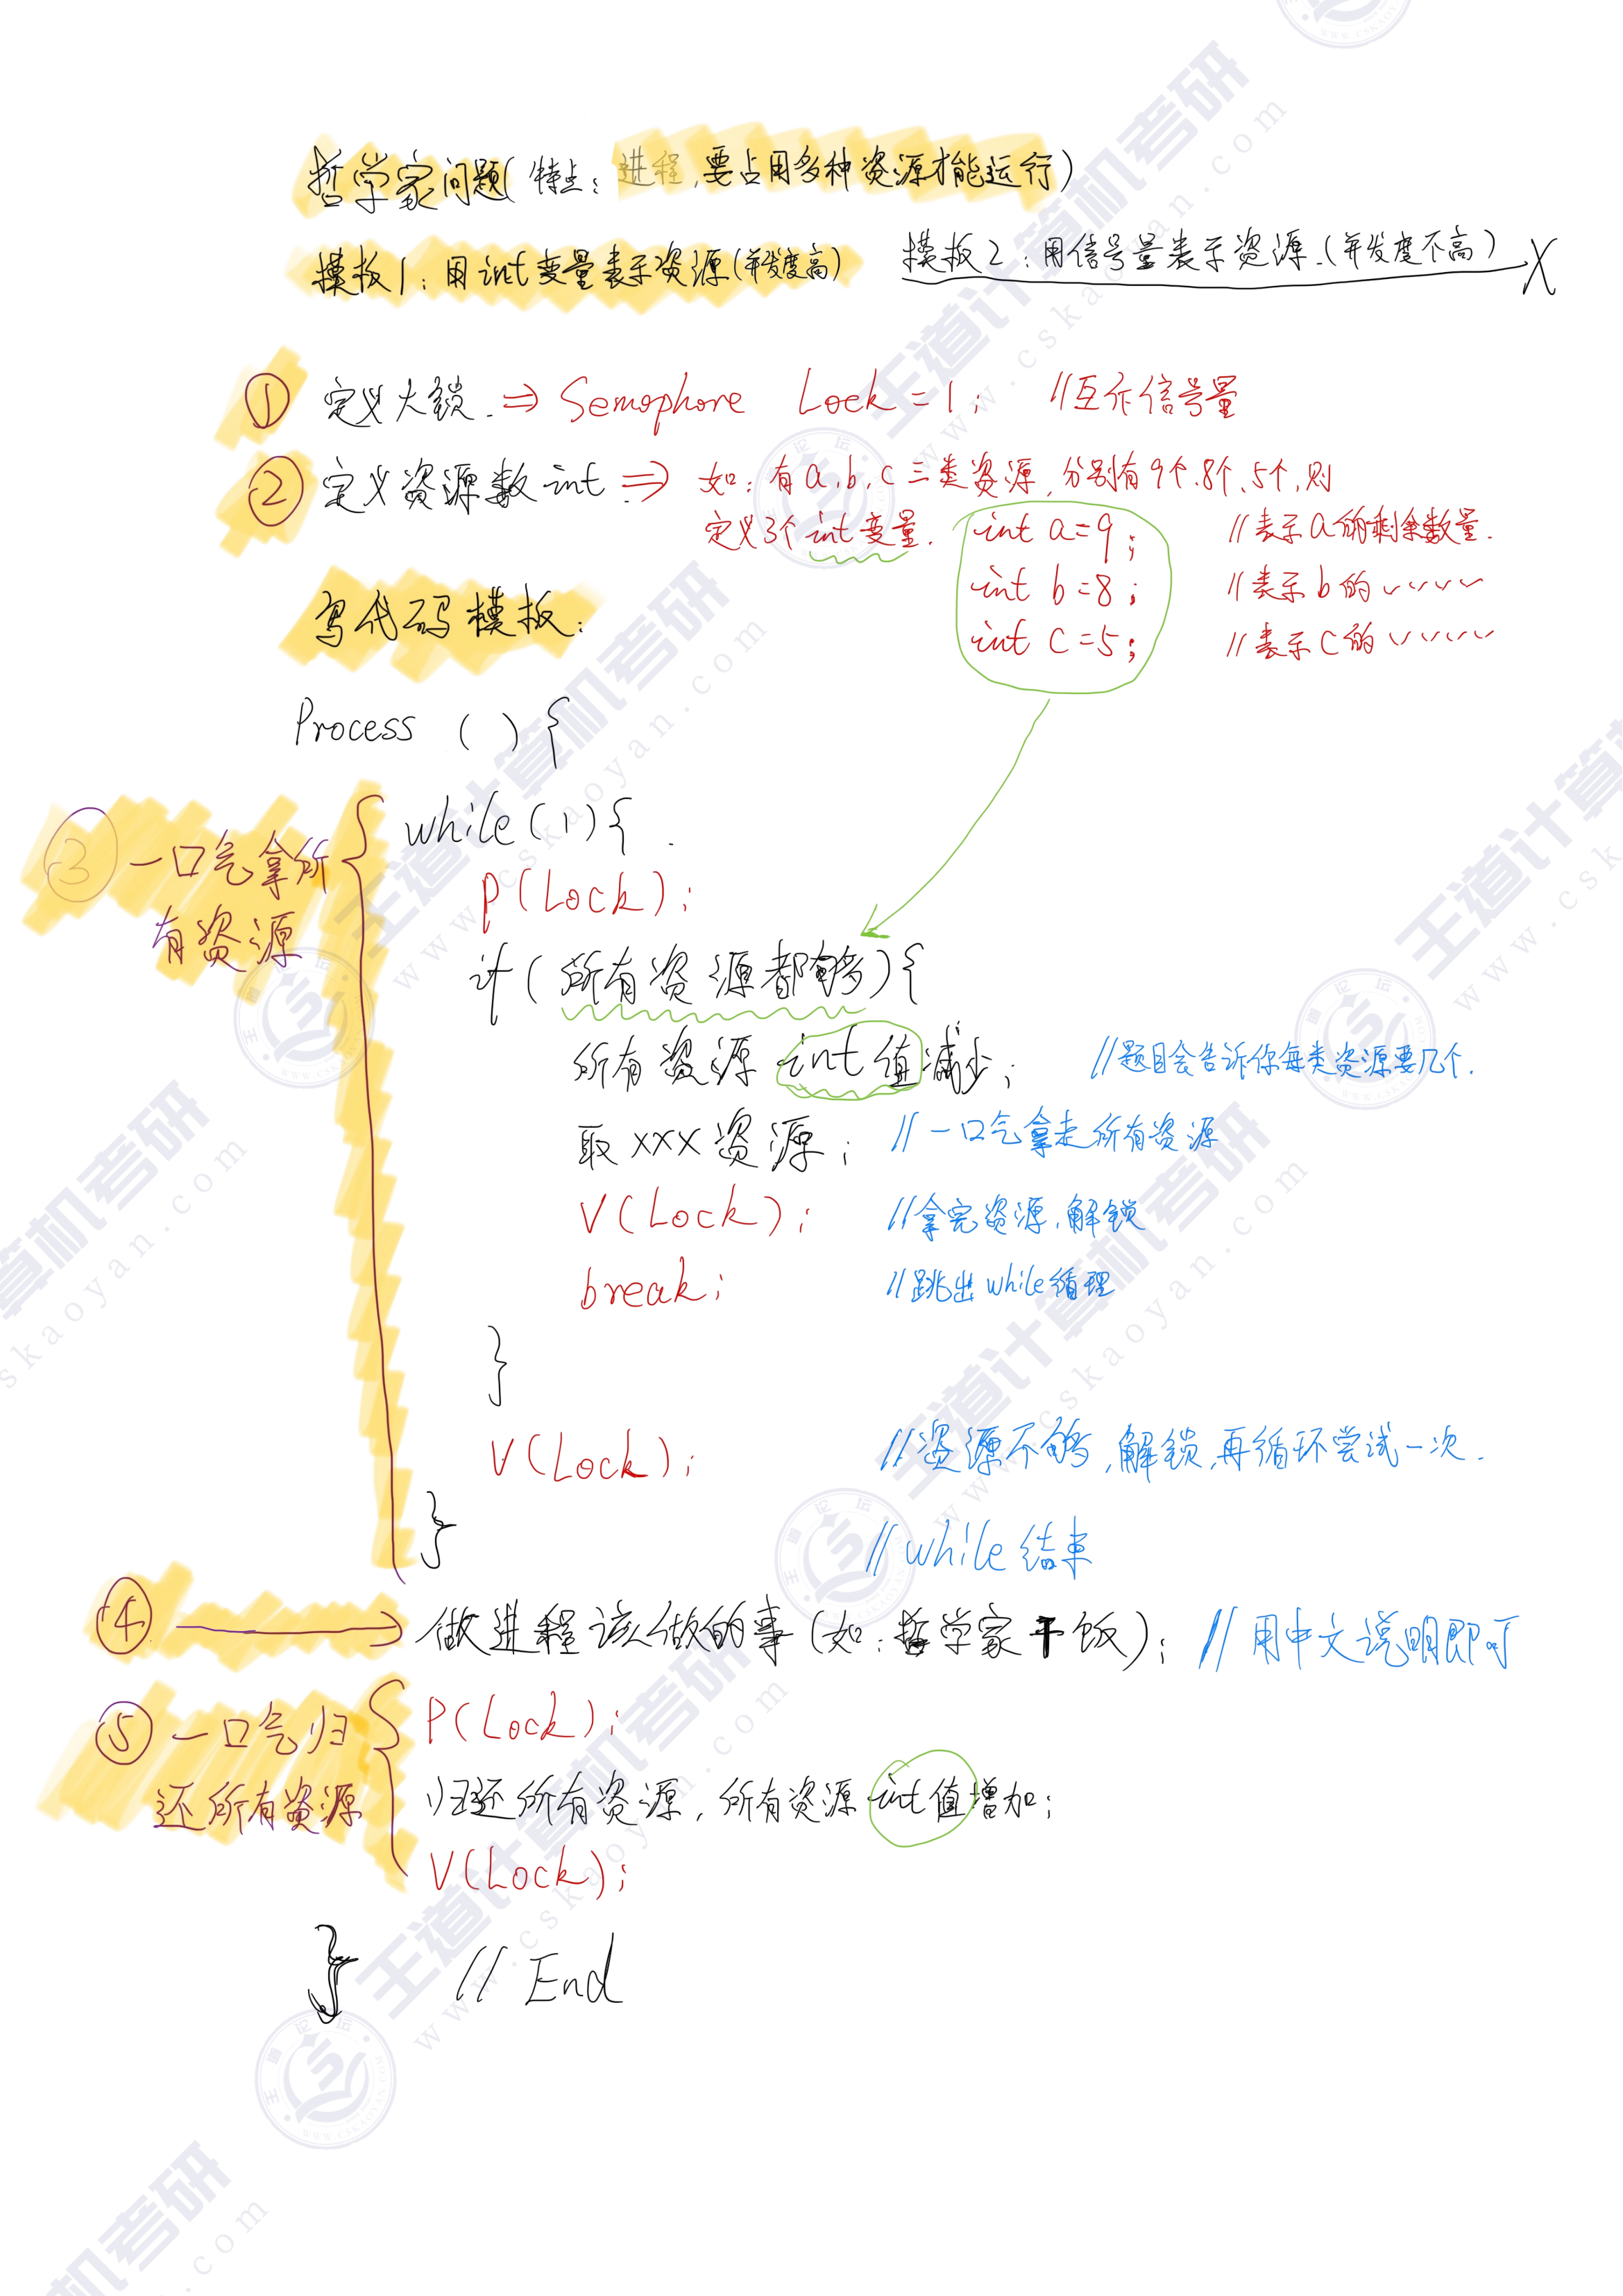 哲学家问题(特点：进程，要占用多种资源才能运行)
模板1：用int变量表示资源(并发度高)
模板2：用信号量表示资源.(并发度不高) X
① 定义大锁. ⇒ Semophore Lock = 1; //互斥信号量
② 定义资源数int ⇒ 如：有a、b、c三类资源，分别有9个、8个、5个，则
定义3个int变量. int a=9; //表示a的剩余数量.
int b=8; //表示b的 、、、、
int c=5; //表示c的 、、、、
写代码模板：
Process () {
③ 一口气拿所
有资源
while(1){
P(Lock);
if(所有资源都够){
所有资源int值减少; //题目会告诉你每类资源要几个.
取xxx资源; //一口气拿走所有资源
V(Lock); //拿完资源，解锁
break; //跳出while循环
}
V(Lock); //资源不够，解锁，再循环尝试一次.
} //while结束
④ → 做进程该做的事(如：哲学家干饭); //用中文说明即可
⑤ 一口气归
还所有资源
P(Lock);
归还所有资源，所有资源int值增加;
V(Lock);
} // End
王道计算机考研
www.cskaoyan.com